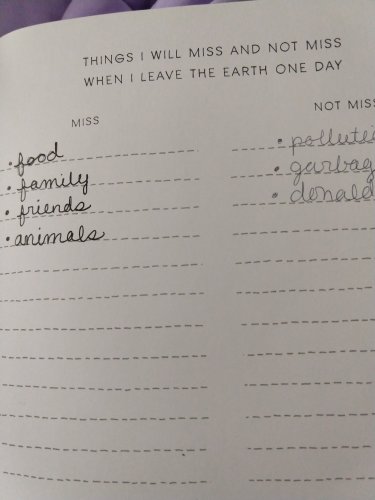 THINGS I WILL MISS AND NOT MISS
WHEN I LEAVE THE EARTH ONE DAY
MISS
• food
• family
• friends
• animals
NOT MISS
• pollute
• garbag
• donald